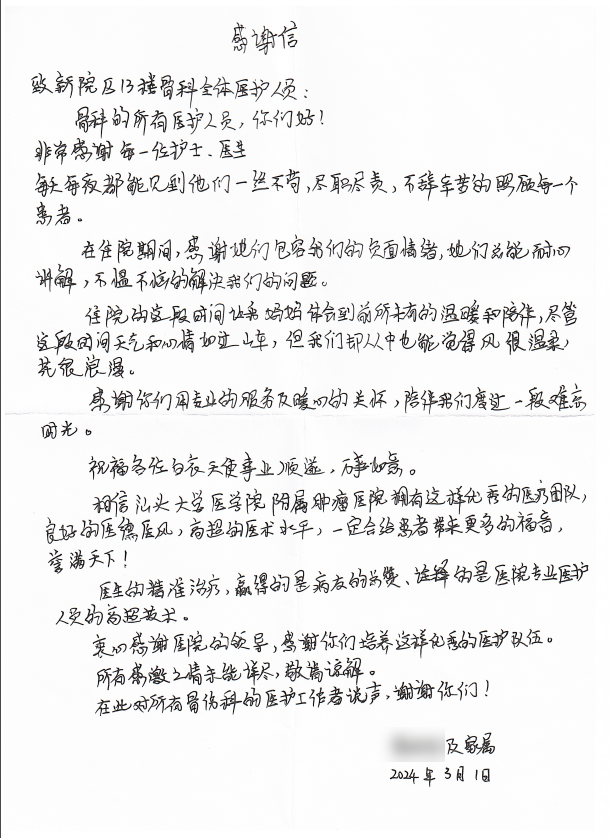 感谢信
致新院区13楼骨科全体医护人员：
骨科的所有医护人员，你们好！
非常感谢每一位护士、医生
每天每夜都能见到他们一丝不苟，尽职尽责，不辞辛苦的照顾每一个
患者。
在住院期间，感谢她们包容我们的负面情绪，她们总能耐心
讲解，不愠不恼的解决我们的问题。
住院的这段时间让我妈妈体会到前所未有的温暖和陪伴，尽管
这段时间天气和心情如过山车，但我们却从中也能觉得风很温柔，
花很浪漫。
感谢你们用专业的服务及暖心的关怀，陪伴我们度过一段难忘
时光。
祝福各位白衣天使事业顺遂，万事如意。
相信汕头大学医学院附属肿瘤医院拥有这样优秀的医疗团队，
良好的医德医风，高超的医术水平，一定会给患者带来更多的福音，
誉满天下！
医生的精准治疗，赢得的是病友的点赞、诠释的是医院专业医护
人员的高超技术。
衷心感谢医院的领导，感谢你们培养这样优秀的医护队伍。
所有感激之情未能详尽，敬请谅解。
在此对所有骨伤科的医护工作者说声，谢谢你们！
及家属
2024年3月1日